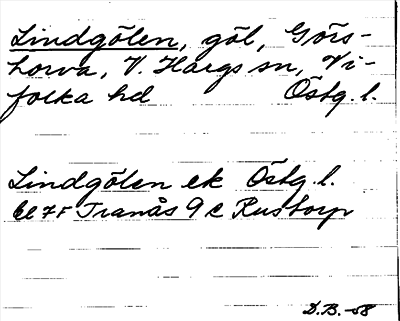 Lindgölen, göl, Görs-
horva, V. Hargs sn, Vi-
folka hd Östg. l.
Lindgölen ek Östg. l.
bl 7F Tranås 9c Rustorp
D.B. -58